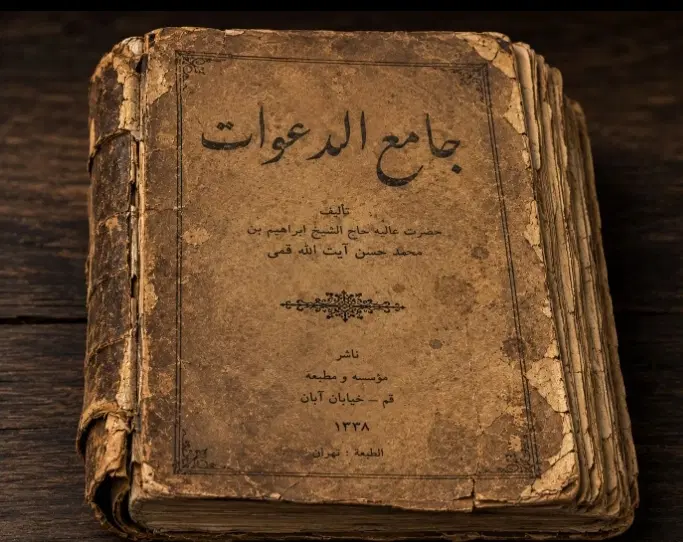 جامع الدعوات
تأليف
حضرت عاليه حاج الشيخ ابراهيم بن
محمد حسن آيت الله قمى
ناشر
مؤسسه و مطبعه
قم – خيابان آبان
۱۳۳۸
الطبعة : تهران